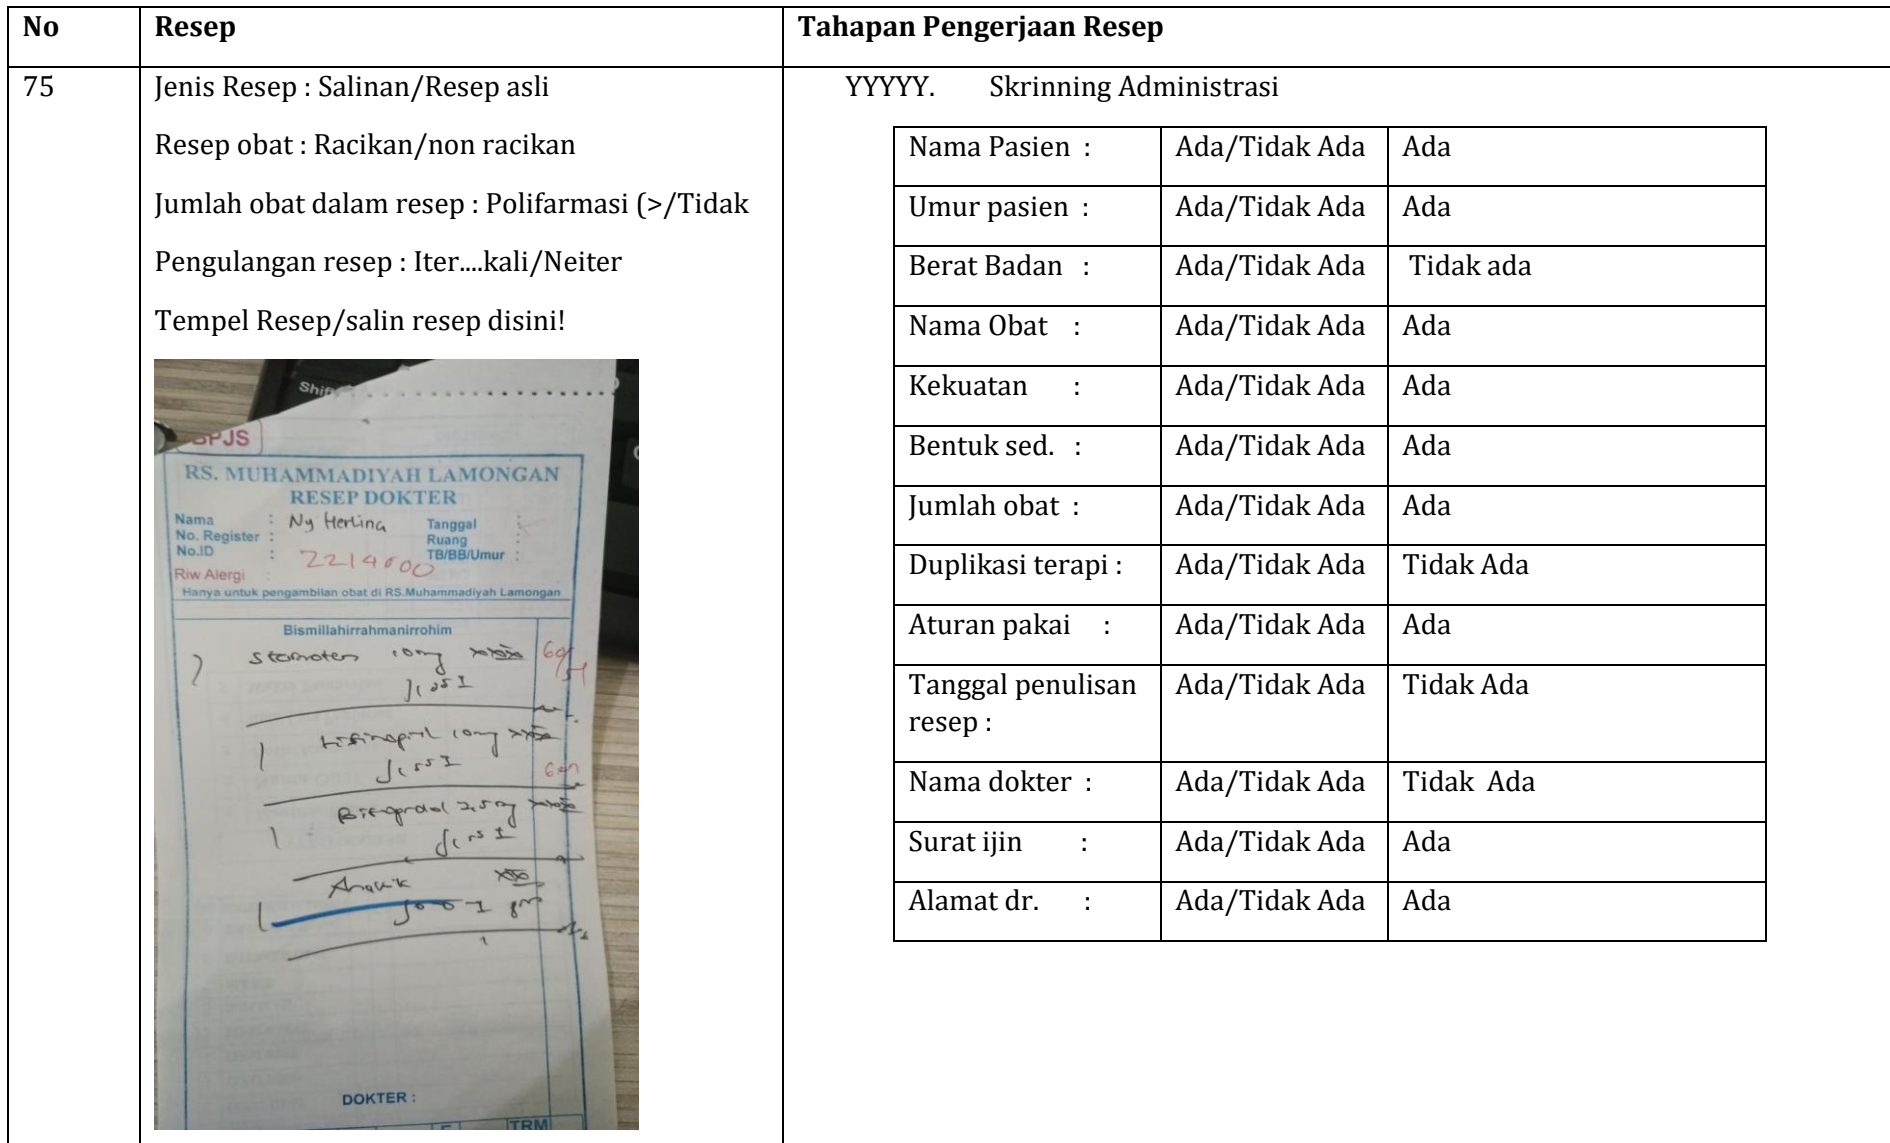 No Resep Tahapan Pengerjaan Resep
75 Jenis Resep : Salinan/Resep asli
Resep obat : Racikan/non racikan
Jumlah obat dalam resep : Polifarmasi (>/Tidak
Pengulangan resep : Iter....kali/Neiter
Tempel Resep/salin resep disini!
Shift
BPJS
RS. MUHAMMADIYAH LAMONGAN
RESEP DOKTER
Nama : Ny Herlina Tanggal :
No. Register : Ruang :
No.ID : 2214000 TB/BB/Umur :
Riw Alergi :
Hanya untuk pengambilan obat di RS.Muhammadiyah Lamongan
Bismillahirrahmanirrohim
10mg
Lisinopril 10mg
Bisoprolol 2,5mg
DOKTER :
TRM
YYYYY. Skrinning Administrasi
Nama Pasien : Ada/Tidak Ada Ada
Umur pasien : Ada/Tidak Ada Ada
Berat Badan : Ada/Tidak Ada Tidak ada
Nama Obat : Ada/Tidak Ada Ada
Kekuatan : Ada/Tidak Ada Ada
Bentuk sed. : Ada/Tidak Ada Ada
Jumlah obat : Ada/Tidak Ada Ada
Duplikasi terapi : Ada/Tidak Ada Tidak Ada
Aturan pakai : Ada/Tidak Ada Ada
Tanggal penulisan Ada/Tidak Ada Tidak Ada
resep :
Nama dokter : Ada/Tidak Ada Tidak Ada
Surat ijin : Ada/Tidak Ada Ada
Alamat dr. : Ada/Tidak Ada Ada